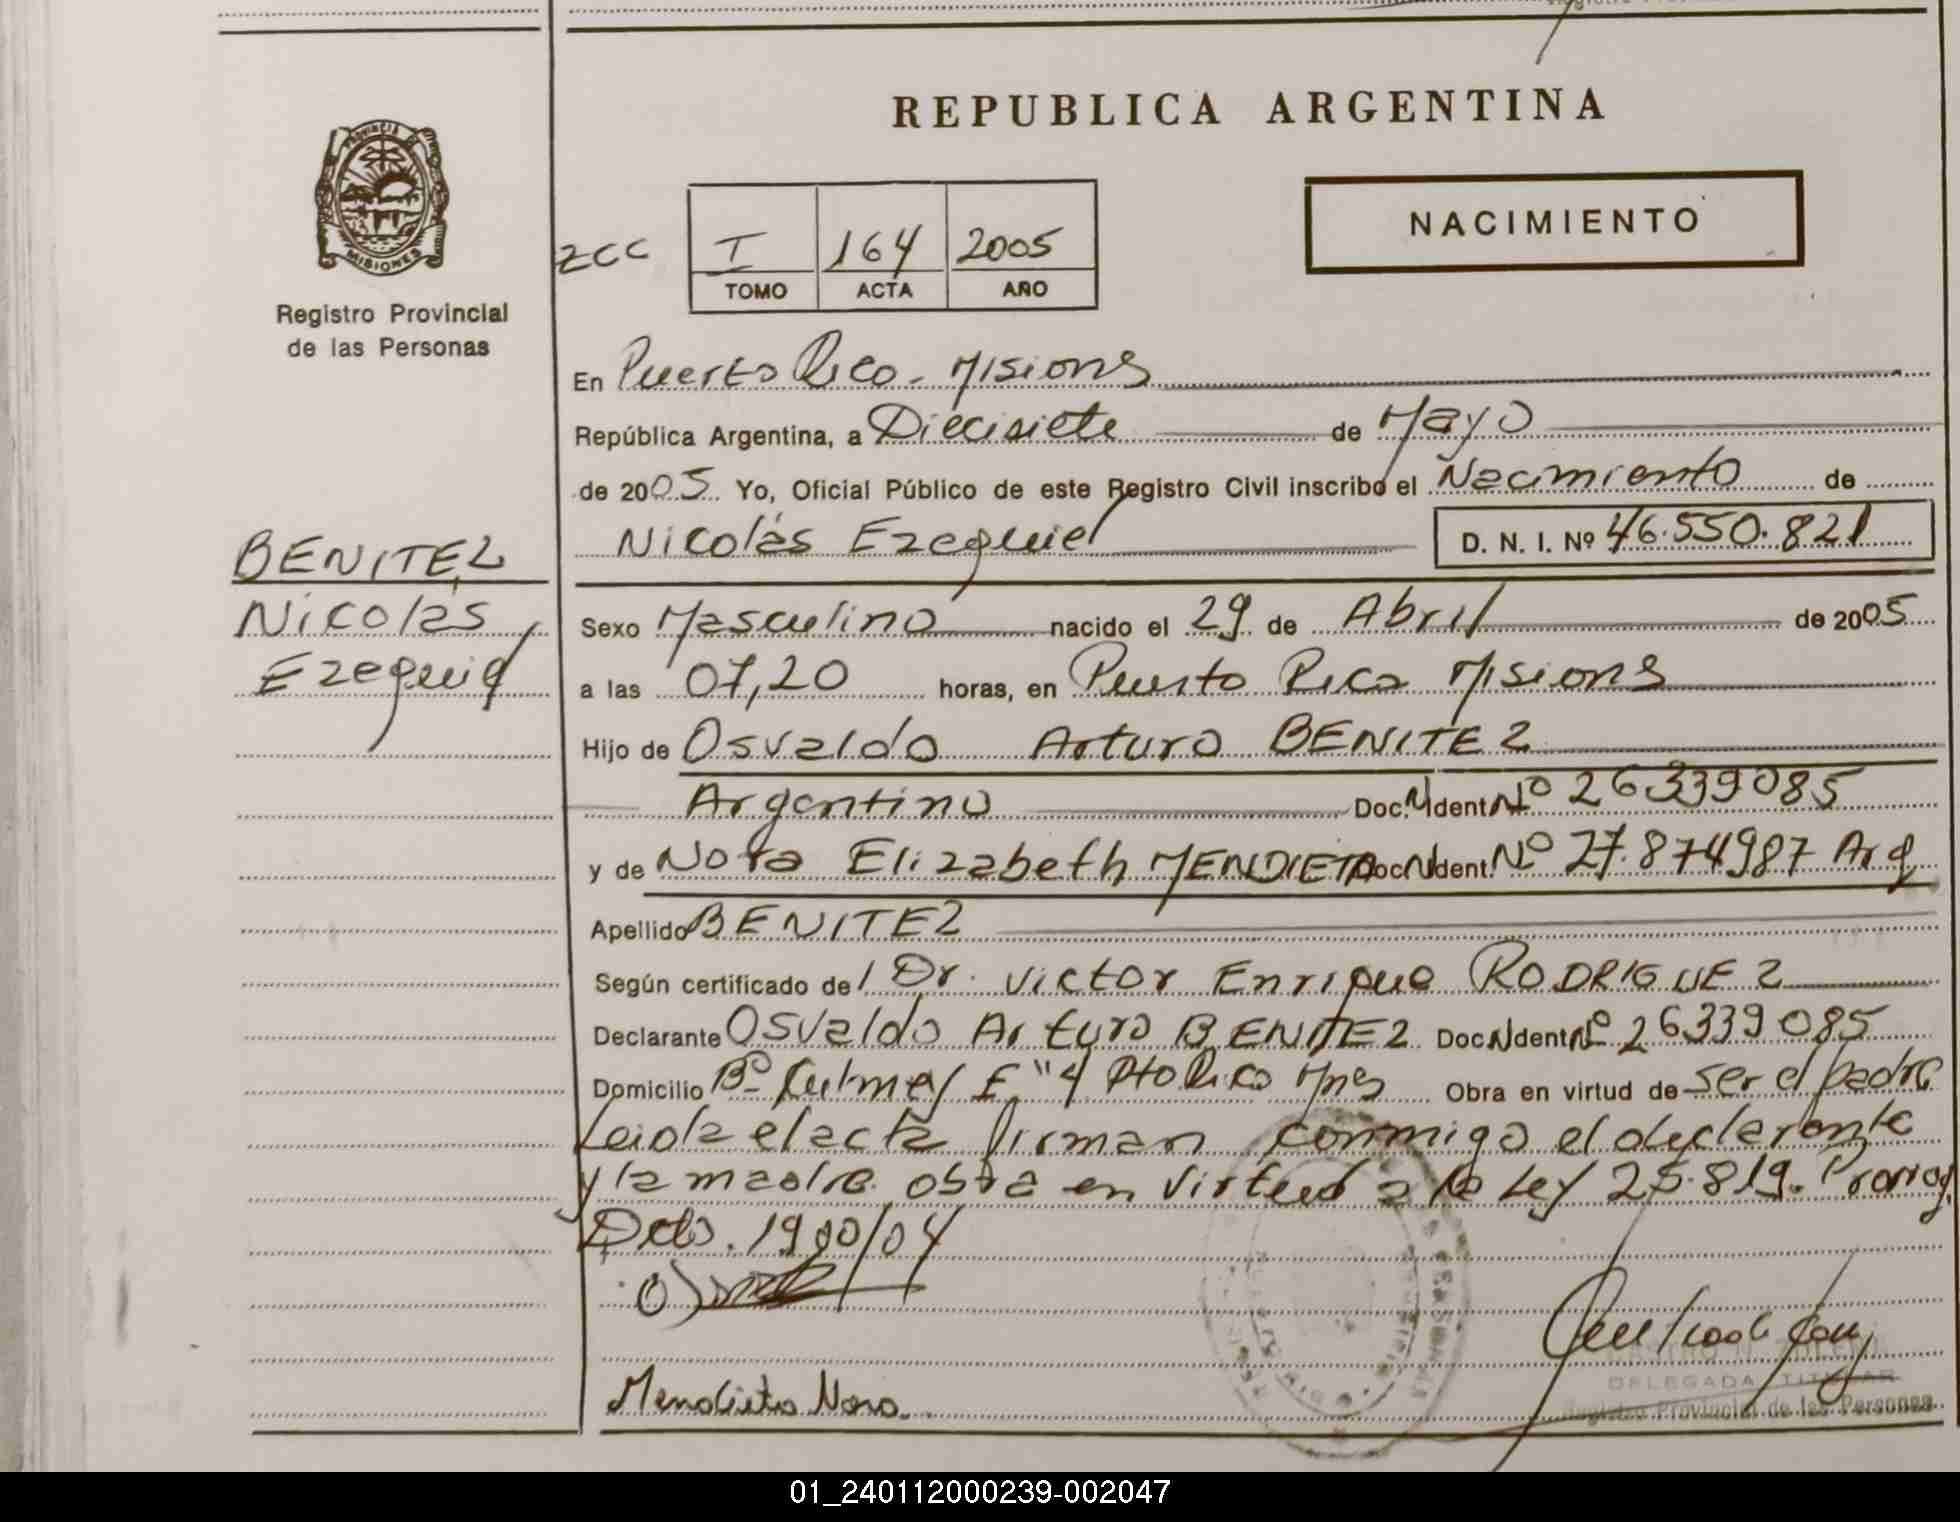 REPUBLICA ARGENTINA
PROVINCIA DE
MISIONES
Registro Provincial
de las Personas
NACIMIENTO
ZCC
I 164 2005
TOMO ACTA AÑO
En Puerto Rico - Misiones
República Argentina, a Diecisiete de Mayo
de 2005 Yo, Oficial Público de este Registro Civil inscribo el Nacimiento de
Nicolás Ezequiel D. N. I. Nº 46.550.821
BENITEZ
Nicolás
Ezequiel
Sexo Masculino nacido el 29 de Abril de 2005
a las 07,20 horas, en Puerto Rico Misiones
Hijo de Osvaldo Arturo BENITEZ
Argentino Doc. N. Ident. Nº 26339085
y de Nora Elizabeth MENDIETA Doc. N. Ident. Nº 27.874987 Arg
Apellido BENITEZ
Según certificado del Dr. Victor Enrique RODRIGUEZ
Declarante Osvaldo Arturo BENITEZ Doc. N. Ident. Nº 26339085
Domicilio Bº Culmey E "4 Pto Rico Mnes Obra en virtud de ser el padre
Leida el acta firman conmigo el declarante
y la madre. obra en virtud a la Ley 25.819. Prorrog
Dcto. 1900/04
Mendieta Nora
DELEGADA TITULAR
Registro Provincial de las Personas
01_240112000239-002047